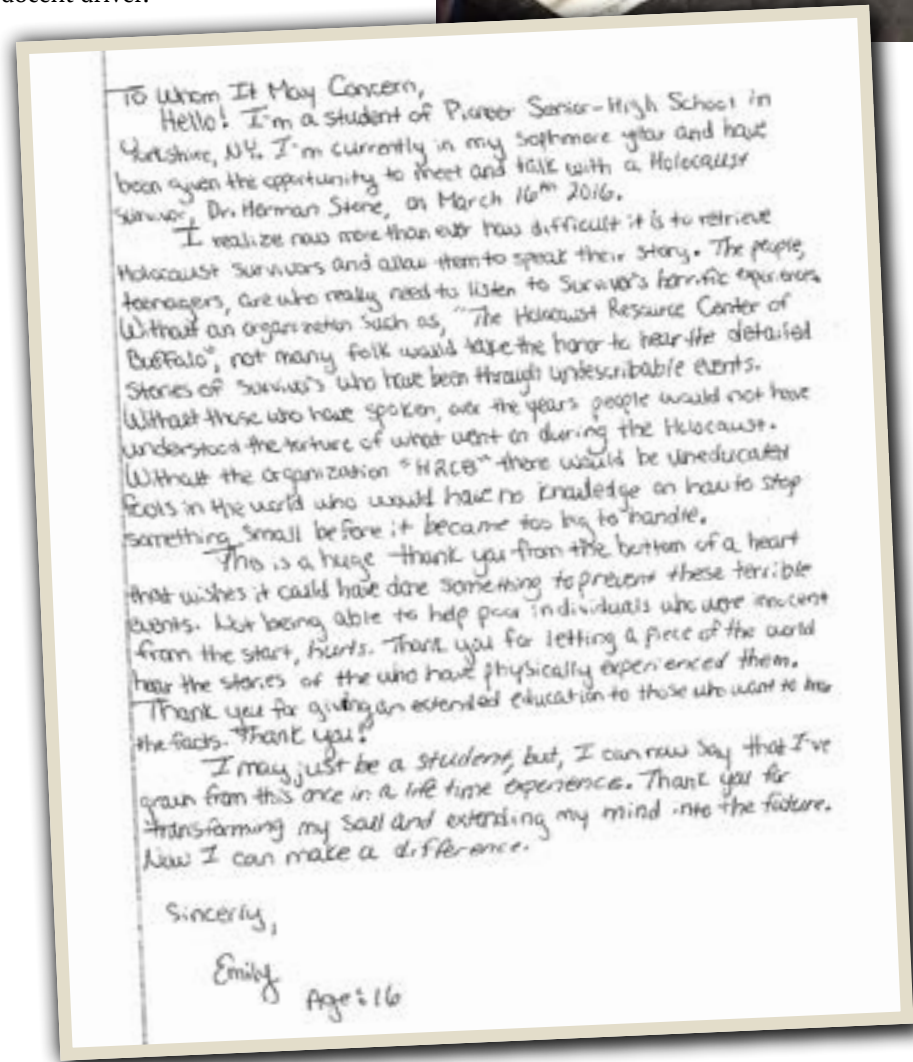 docent driver.
To Whom It May Concern,
Hello! I'm a student of Pioneer Senior-High School in
Yorkshire, NY. I'm currently in my sophmore year and have
been given the opportunity to meet and talk with a Holocaust
Survivor, Dr. Herman Stone, on March 16th 2016.
I realize now more than ever how difficult it is to retrieve
Holocaust survivors and allow them to speak their story. The people,
teenagers, are who really need to listen to Survivor's horrific experiences.
Without an organization such as, "The Holocaust Resource Center of
Buffalo", not many folk would take the honor to hear the detailed
stories of survivor's who have been through undescribable events.
Without those who have spoken, over the years people would not have
understood the torture of what went on during the Holocaust.
Without the organization "HRCB" there would be uneducated
fools in the world who would have no knowledge on how to stop
something small before it became too big to handle.
This is a huge thank you from the bottom of a heart
that wishes it could have done something to prevent these terrible
events. Not being able to help poor individuals who were innocent
from the start, hurts. Thank you for letting a piece of the world
hear the stories of the who have physically experienced them.
Thank you for giving an extended education to those who want to hear
the facts. Thank you!
I may just be a student, but, I can now say that I've
grown from this once in a life time experience. Thank you for
transforming my soul and extending my mind into the future.
Now I can make a difference.
Sincerly,
Emily
Age: 16